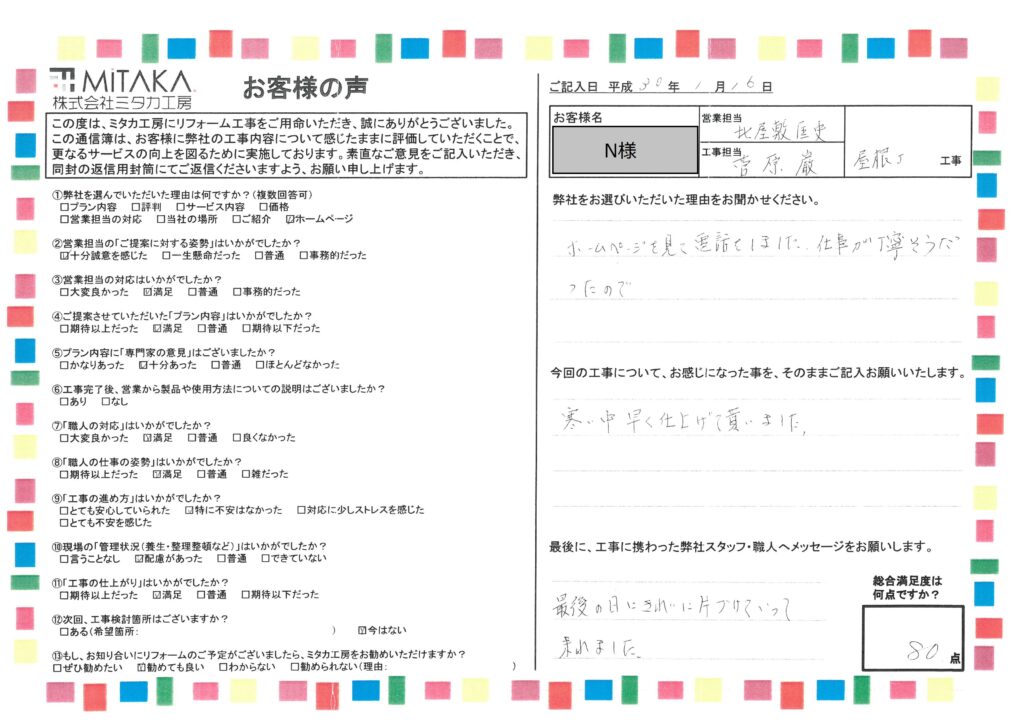 MiTAKA
株式会社ミタカ工房
お客様の声
この度は、ミタカ工房にリフォーム工事をご用命いただき、誠にありがとうございました。
この通信簿は、お客様に弊社の工事内容について感じたままに評価していただくことで、
更なるサービスの向上を図るために実施しております。素直なご意見をご記入いただき、
同封の返信用封筒にてご返信くださいますよう、お願い申し上げます。
①弊社を選んでいただいた理由は何ですか？(複数回答可)
□プラン内容 □評判 □サービス内容 □価格
□営業担当の対応 □当社の場所 □ご紹介 ☑ホームページ
②営業担当の「ご提案に対する姿勢」はいかがでしたか？
☑十分誠意を感じた □一生懸命だった □普通 □事務的だった
③営業担当の対応はいかがでしたか？
□大変良かった ☑満足 □普通 □事務的だった
④ご提案させていただいた「プラン内容」はいかがでしたか？
□期待以上だった ☑満足 □普通 □期待以下だった
⑤プラン内容に「専門家の意見」はございましたか？
□かなりあった ☑十分あった □普通 □ほとんどなかった
⑥工事完了後、営業から製品や使用方法についての説明はございましたか？
□あり □なし
⑦「職人の対応」はいかがでしたか？
□大変良かった ☑満足 □普通 □良くなかった
⑧「職人の仕事の姿勢」はいかがでしたか？
□期待以上だった ☑満足 □普通 □雑だった
⑨「工事の進め方」はいかがでしたか？
□とても安心していられた ☑特に不安はなかった □対応に少しストレスを感じた
□とても不安を感じた
⑩現場の「管理状況(養生・整理整頓など)」はいかがでしたか？
□言うことなし ☑配慮があった □普通 □できていない
⑪「工事の仕上がり」はいかがでしたか？
□期待以上だった ☑満足 □普通 □期待以下だった
⑫次回、工事検討箇所はございますか？
□ある(希望箇所: ) ☑今はない
⑬もし、お知り合いにリフォームのご予定がございましたら、ミタカ工房をお勧めいただけますか？
□ぜひ勧めたい ☑勧めても良い □わからない □勧められない(理由: )
ご記入日 平成 30 年 1 月 16 日
お客様名
N様
営業担当
北屋敷匡史
工事担当
菅原 巌
屋根 工事
弊社をお選びいただいた理由をお聞かせください。
ホームページを見て電話をしました。仕事が丁寧そうだ
ったので
今回の工事について、お感じになった事を、そのままご記入お願いいたします。
寒い中早く仕上げて貰いました。
最後に、工事に携わった弊社スタッフ・職人へメッセージをお願いします。
最後の日にきれいに片づけていって
来れました。
総合満足度は
何点ですか？
80 点